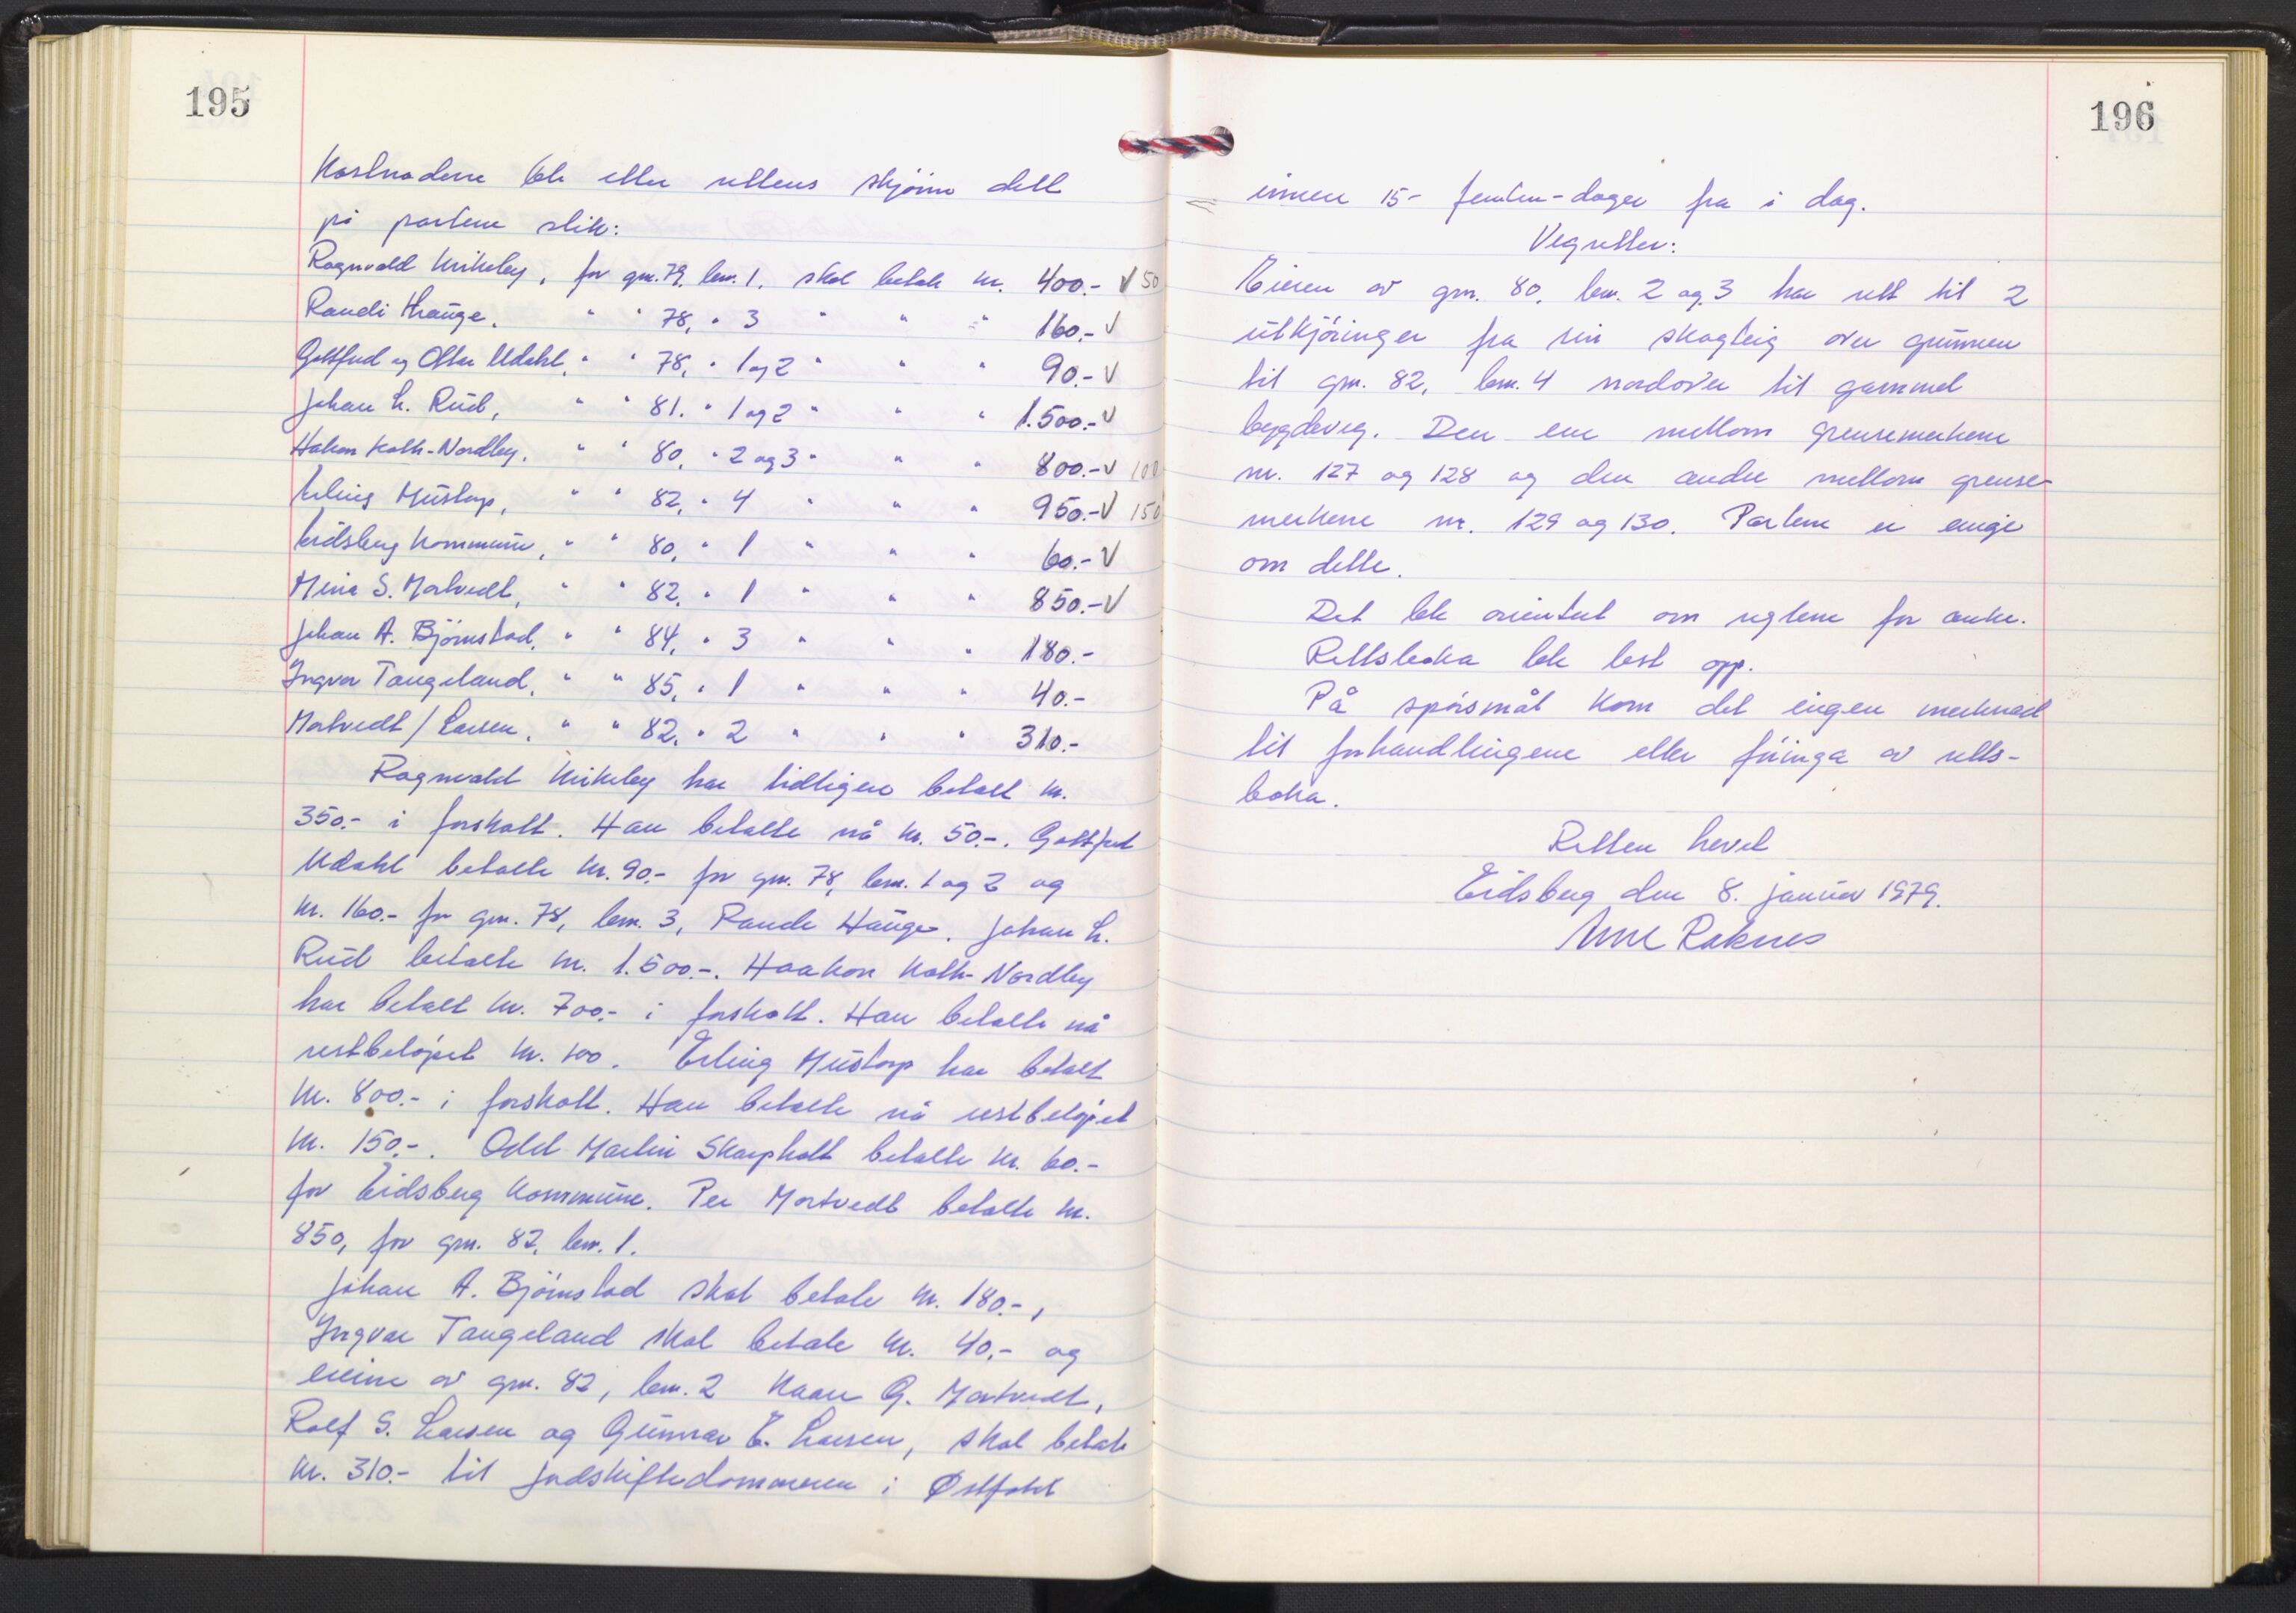 195
Kostnadene ble etter rettens skjönn delt
på partene slik:
Ragnvald Kirkeby, for gnr. 79, bnr. 1. skal betale kr. 400.- V 50
Randi Hauge. " " 78, " 3 " " " 160.- V
Gottfred og Ottar Udahl, " " 78, " 1 og 2 " " " 90.- V
Johan L. Rud, " " 81. " 1 og 2 " " " 1.500.- V
Håkon Kolh-Nordby. " " 80, " 2 og 3 " " " 800.- V 100
Erling Mustorp, " " 82, " 4 " " " 950.- V 150
Eidsberg Kommune, " " 80, " 1 " " " 60.- V
Mina S. Mortvedt, " " 82, " 1 " " " 850.- V
Johan A. Björnstad, " " 84, " 3 " " " 180.-
Ingvar Tangeland, " " 85, " 1 " " " 40.-
Mortvedt / Larsen. " " 82, " 2 " " " 310.-
Ragnvald Kirkeby har tidligere betalt kr.
350.- i forskott. Han betalte nå kr. 50.-. Gottfred
Udahl betalte kr. 90.- for gnr. 78, bnr. 1 og 2 og
kr. 160.- for gnr. 78, bnr. 3, Randi Hauge. Johan L.
Rud betalte kr. 1.500.-. Haakon Kolh-Nordby
har betalt kr. 700.- i forskott. Han betalte nå
restbelöpet kr. 100. Erling Mustorp har betalt
kr. 800.- i forskott. Han betalte nå restbelöpet
kr. 150.-. Odd Martin Skarpholt betalte kr. 60.-
for Eidsberg Kommune. Per Mortvedt betalte kr.
850, for gnr. 82, bnr. 1.
Johan A. Björnstad skal betale kr. 180.-,
Ingvar Tangeland skal betale kr. 40,- og
eierne av gnr. 82, bnr. 2 Kaare G. Mortvedt,
Rolf S. Larsen og Gunnar E. Larsen, skal betale
kr. 310.- til jordskiftedommeren i Østfold
196
innen 15- femten-dager fra i dag.
Vegretter:
Eieren av gnr. 80, bnr. 2 og 3 har rett til 2
utkjöringer fra sin skogteig over grunnen
til gnr. 82, bnr. 4 nordover til gammel
bygdeveg. Den ene mellom grensemerkene
nr. 127 og 128 og den andre mellom grense-
merkene nr. 129 og 130. Partene er enige
om dette.
Det ble orientert om reglene for anke.
Rettsboka ble lest opp.
På spörsmål kom det ingen merknad
til forhandlingene eller föringa av retts-
boka.
Retten hevet
Eidsberg den 8. januar 1979.
Arne Raknes